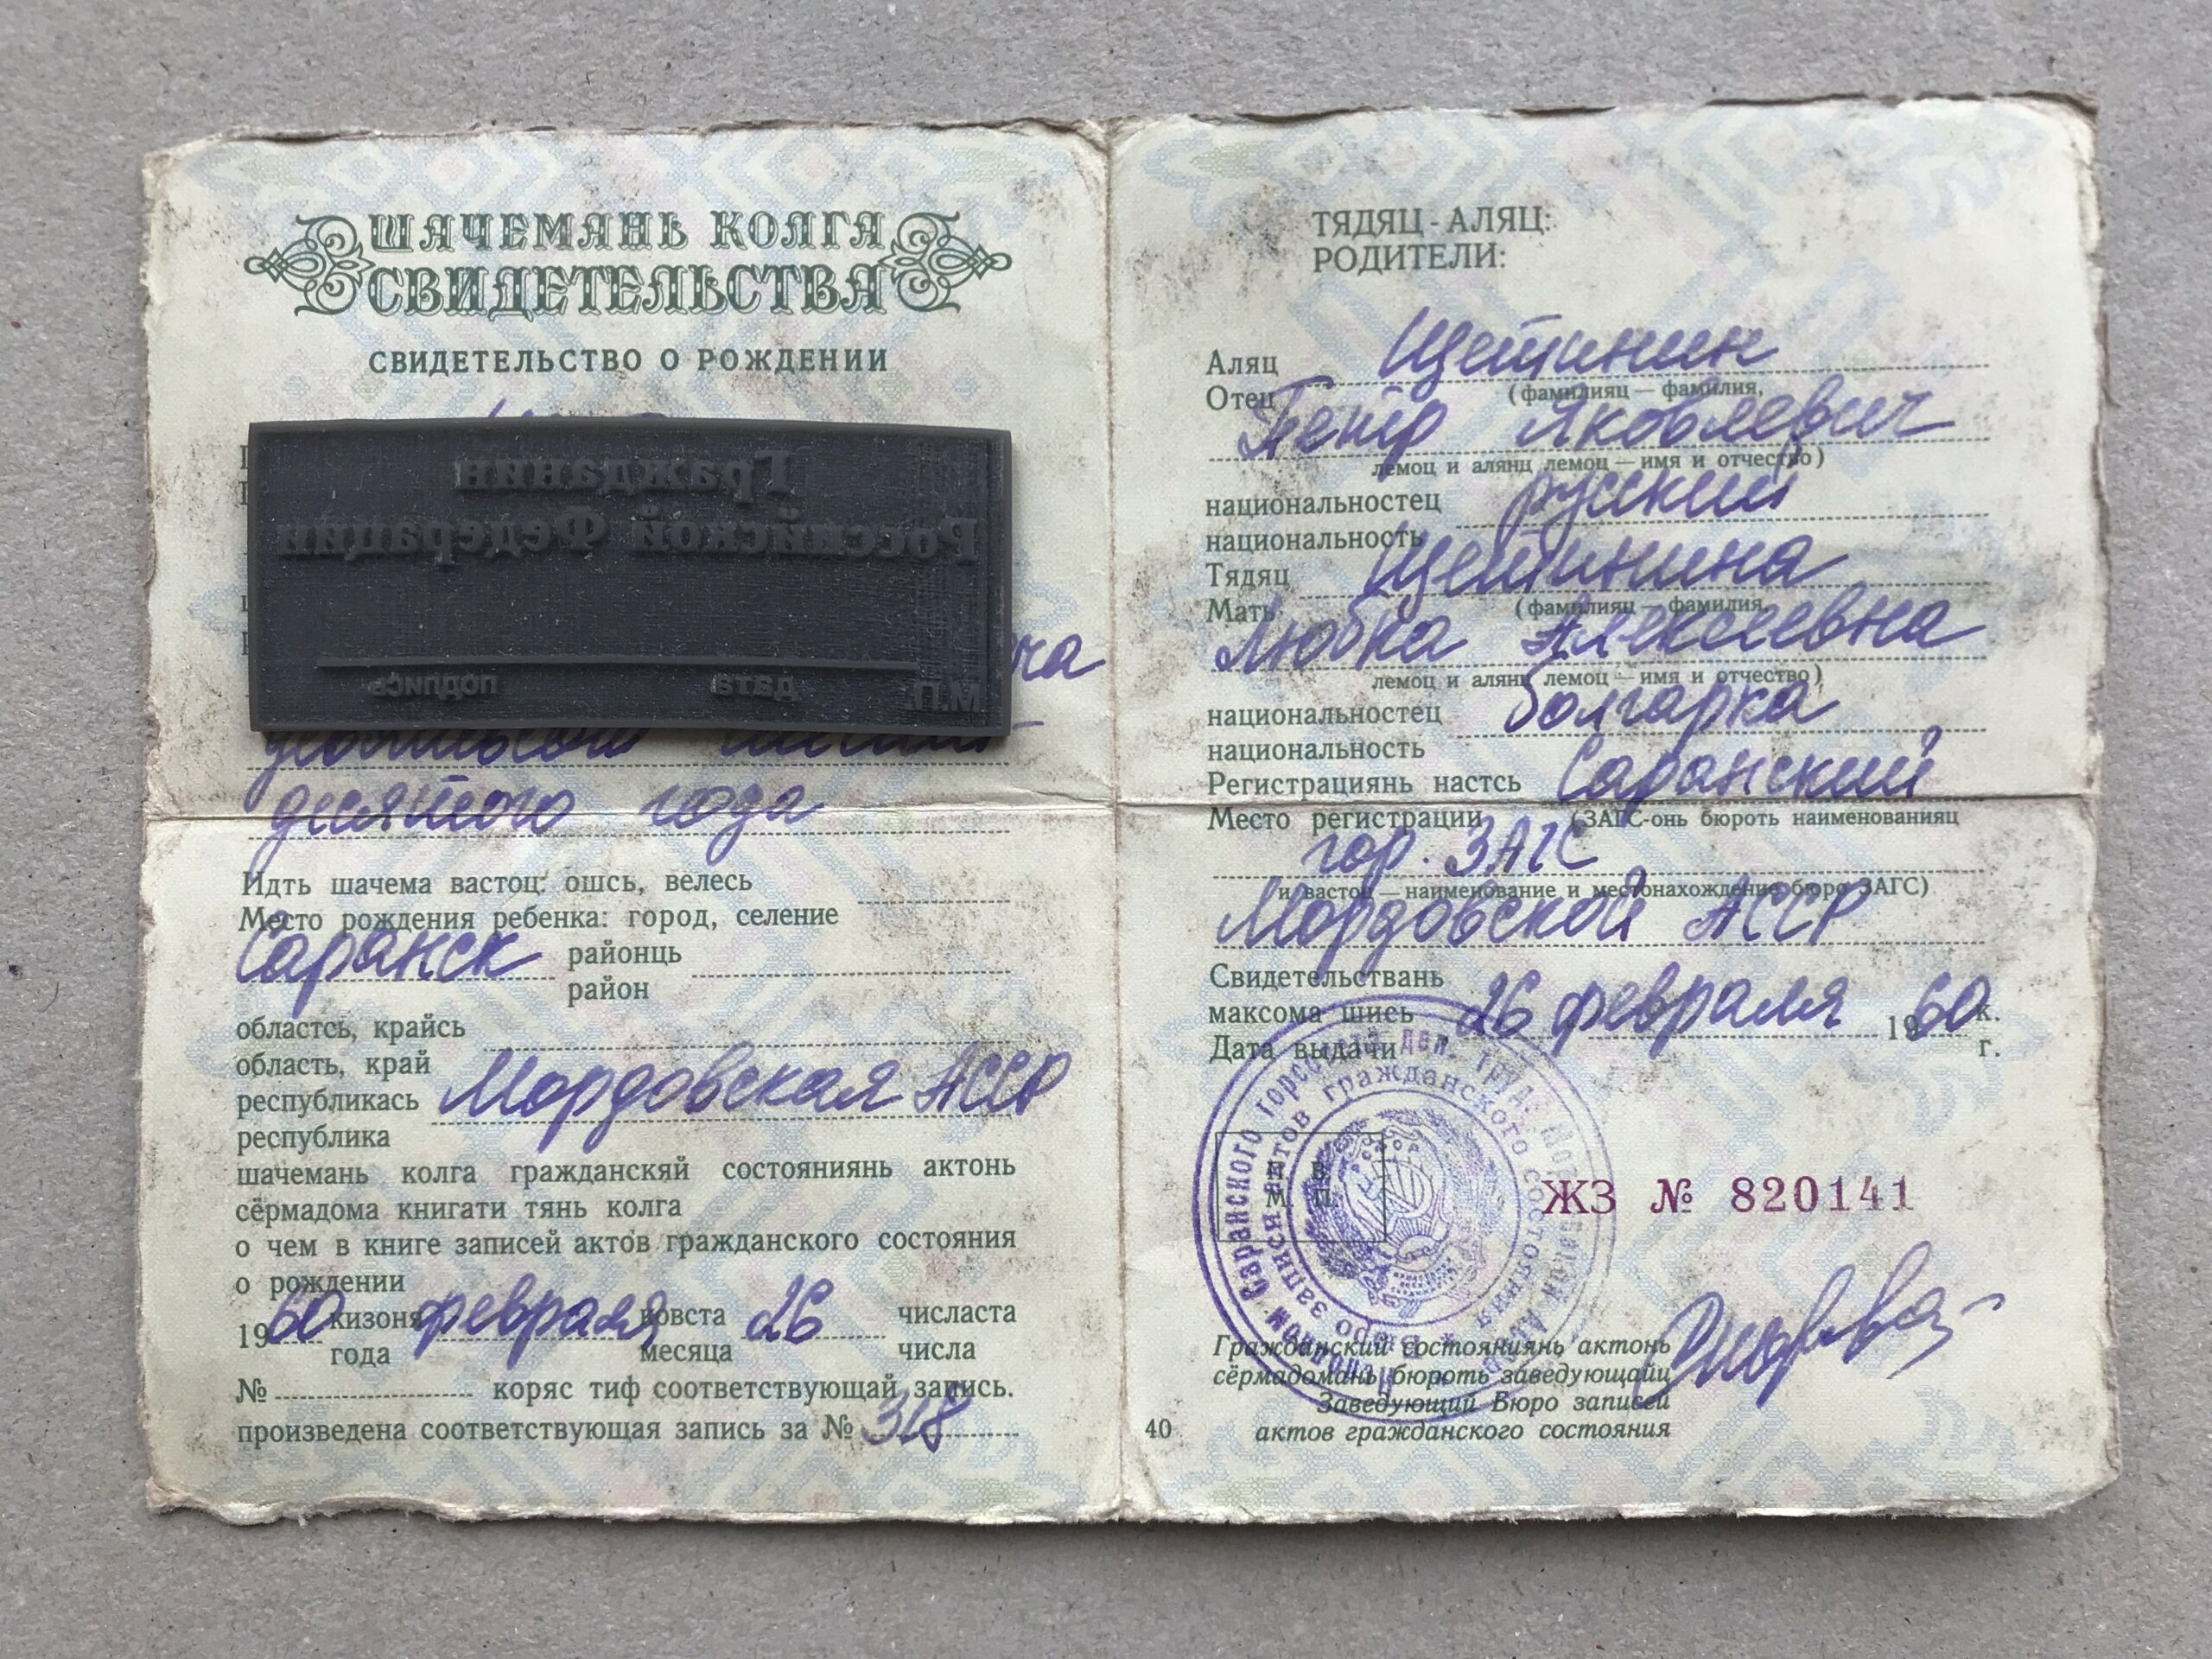 ШАЧЕМАНЬ КОЛГА
СВИДЕТЕЛЬСТВА
СВИДЕТЕЛЬСТВО О РОЖДЕНИИ
Гражданин
Российской Федерации
М.П. дата подпись
десятого года
Идть шачема вастоц: ошсь, велесь
Место рождения ребенка: город, селение
Саранск районць
район
областсь, крайсь
область, край
республикась Мордовская АССР
республика
шачемань колга гражданскяй состояниянь актонь
сёрмадома книгати тянь колга
о чем в книге записей актов гражданского состояния
о рождении
1960 кизонь февраля ковста 26 числаста
года месяца числа
№ коряс тиф соответствующай запись.
произведена соответствующая запись за № 318
ТЯДЯЦ - АЛЯЦ:
РОДИТЕЛИ:
Аляц Щетинин
Отец (фамилияц — фамилия,
Петр Яковлевич
лемоц и алянц лемоц — имя и отчество)
национальностец русский
национальность
Тядяц Щетинина
Мать (фамилияц — фамилия,
Любка Алексеевна
лемоц и алянц лемоц — имя и отчество)
национальностец болгарка
национальность
Регистрациянь настсь Саранский
Место регистрации (ЗАГС-онь бюроть наименованияц
гор. ЗАГС
и вастоц — наименование и местонахождение бюро ЗАГС)
Мордовской АССР
Свидетельствань
максома шись 26 февраля 1960 к.
Дата выдачи г.
Саранского горсовета деп. труд.
Бюро записи актов гражданского состояния
М П
ЖЗ № 820141
Гражданский состояниянь актонь
сёрмадомань бюроть заведующайц
Заведующий Бюро записей
40 актов гражданского состояния